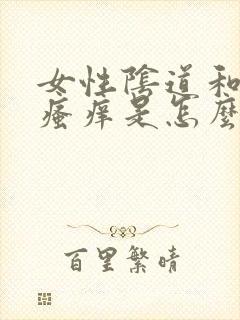 女性陰道和
瘙痒是怎麼
百里繁晴